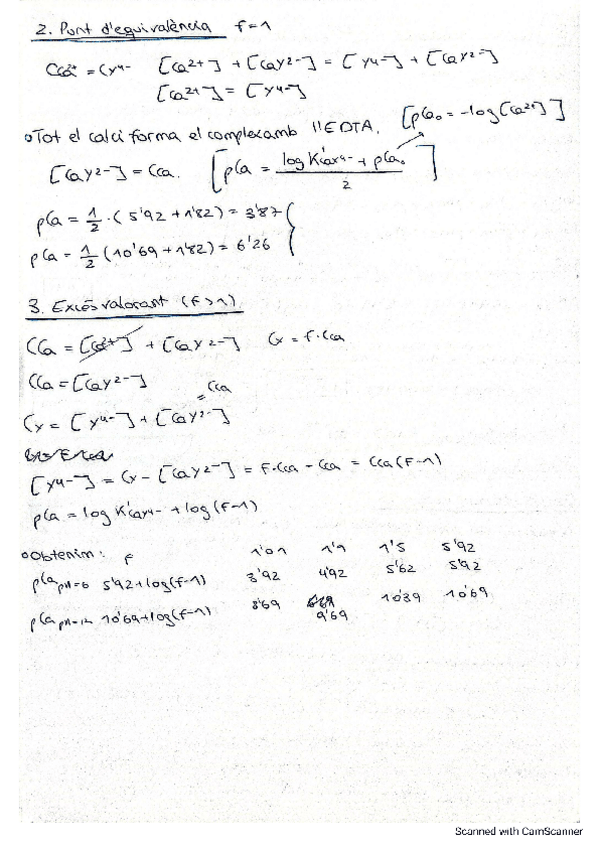 2. Punt d'equivalència f=1
Cca²⁺ = Cy⁴⁻ [Ca²⁺] + [CaY²⁻] = [Y⁴⁻] + [CaY²⁻]
[Ca²⁺] = [Y⁴⁻]
Tot el calci forma el complex amb l'EDTA. [pCa₀ = -log[Ca²⁺]]
[CaY²⁻] = Cca. [pCa = (log K'CaY⁴⁻ + pCa₀)/2]
pCa = 1/2 · (5'92 + 1'82) = 3'87
pCa = 1/2 (10'69 + 1'82) = 6'26
3. Excés valorant (f>1)
CCa = [Ca²⁺] + [CaY²⁻] Cy = f·Cca
CCa = [CaY²⁻]
= Cca
Cy = [Y⁴⁻] + [CaY²⁻]
[Y⁴⁻] = Cy - [CaY²⁻] = f·Cca - Cca = Cca(f-1)
pCa = log K'CaY⁴⁻ + log(f-1)
Obtenim: f 1'01 1'1 1'5 5'92
pCa pH=6 5'92+log(f-1) 3'92 4'92 5'62 5'92
pCa pH=12 10'69+log(f-1) 8'69 9'69 10'39 10'69
Scanned with CamScanner